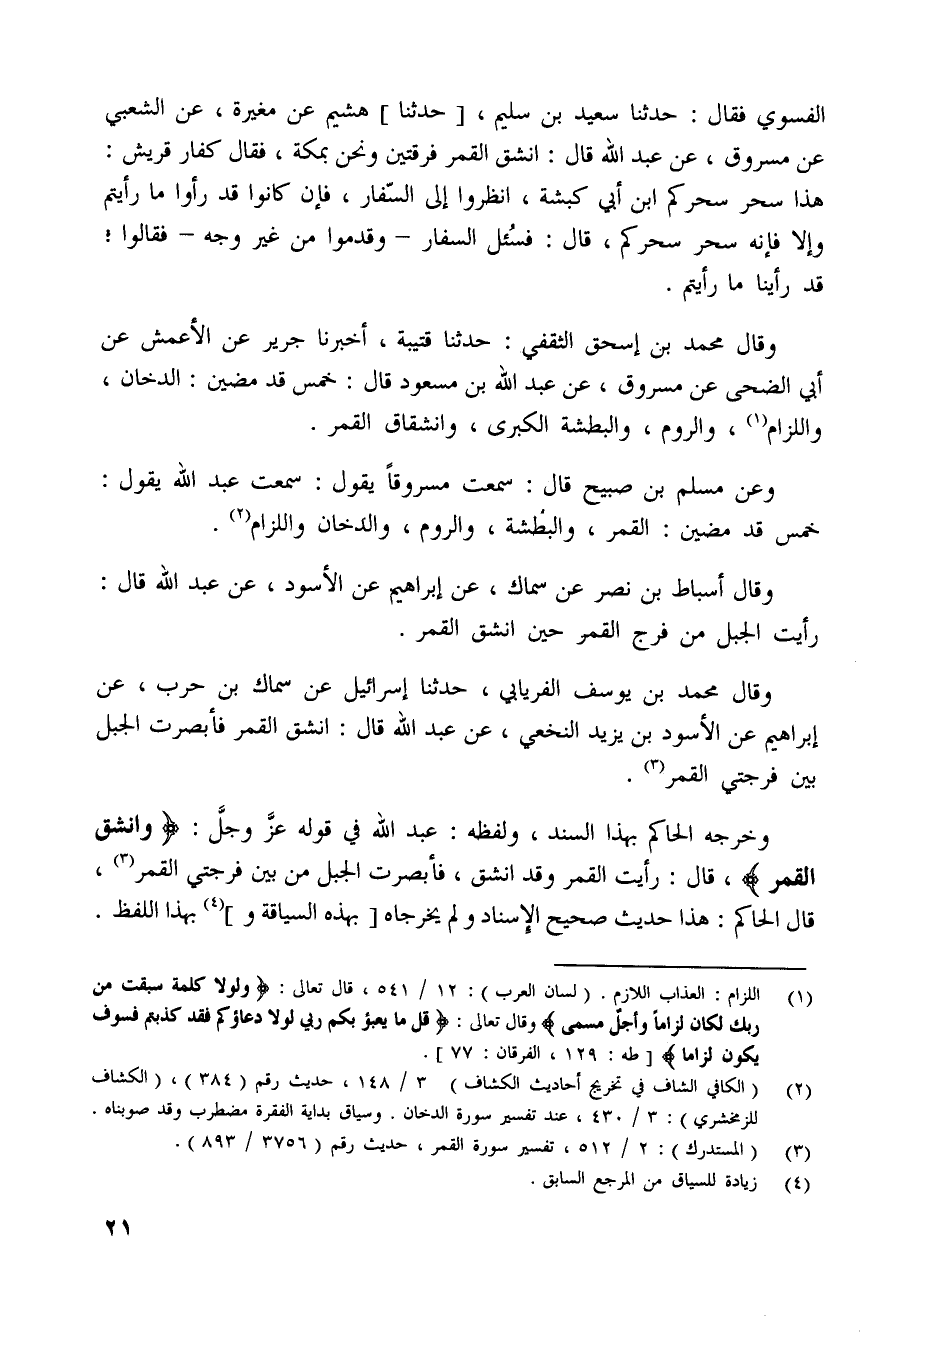 الفسوي فقال : حدثنا سعيد بن سليم ، [ حدثنا ] هشيم عن مغيرة ، عن الشعبي
عن مسروق ، عن عبد الله قال : انشق القمر فرقتين ونحن بمكة ، فقال كفار قريش :
هذا سحر سحركم ابن أبي كبشة ، انظروا إلى السّفار ، فإن كانوا قد رأوا ما رأيتم
وإلا فإنه سحر سحركم ، قال : فسُئل السفار – وقدموا من غير وجه – فقالوا :
قد رأينا ما رأيتم .
وقال محمد بن إسحق الثقفي : حدثنا قتيبة ، أخبرنا جرير عن الأعمش عن
أبي الضحى عن مسروق ، عن عبد الله بن مسعود قال : خمس قد مضين : الدخان ،
واللزام(١) ، والروم ، والبطشة الكبرى ، وانشقاق القمر .
وعن مسلم بن صبيح قال : سمعت مسروقاً يقول : سمعت عبد الله يقول :
خمس قد مضين : القمر ، والبطْشة ، والروم ، والدخان واللزام(٢) .
وقال أسباط بن نصر عن سماك ، عن إبراهيم عن الأسود ، عن عبد الله قال :
رأيت الجبل من فرج القمر حين انشق القمر .
وقال محمد بن يوسف الفريابي ، حدثنا إسرائيل عن سماك بن حرب ، عن
إبراهيم عن الأسود بن يزيد النخعي ، عن عبد الله قال : انشق القمر فأبصرت الجبل
بين فرجتي القمر(٣) .
وخرجه الحاكم بهذا السند ، ولفظه : عبد الله في قوله عزَّ وجلَّ : ﴿ وانشق
القمر ﴾ ، قال : رأيت القمر وقد انشق ، فأبصرت الجبل من بين فرجتي القمر(٣) ،
قال الحاكم : هذا حديث صحيح الإسناد ولم يخرجاه [ بهذه السياقة و ](٤) بهذا اللفظ .
(١) اللزام : العذاب اللازم . ( لسان العرب ) : ١٢ / ٥٤١ ، قال تعالى : ﴿ ولولا كلمة سبقت من
ربك لكان لزاماً وأجلٌ مسمى ﴾ وقال تعالى : ﴿ قل ما يعبؤ بكم ربي لولا دعاؤكم فقد كذبتم فسوف
يكون لزاما ﴾ [ طه : ١٢٩ ، الفرقان : ٧٧ ] .
(٢) ( الكافي الشاف في تخريج أحاديث الكشاف ) ٣ / ١٤٨ ، حديث رقم ( ٣٨٤ ) ، ( الكشاف
للزمخشري ) : ٣ / ٤٣٠ ، عند تفسير سورة الدخان . وسياق بداية الفقرة مضطرب وقد صوبناه .
(٣) ( المستدرك ) : ٢ / ٥١٢ ، تفسير سورة القمر ، حديث رقم ( ٣٧٥٦ / ٨٩٣ ) .
(٤) زيادة للسياق من المرجع السابق .
٢١